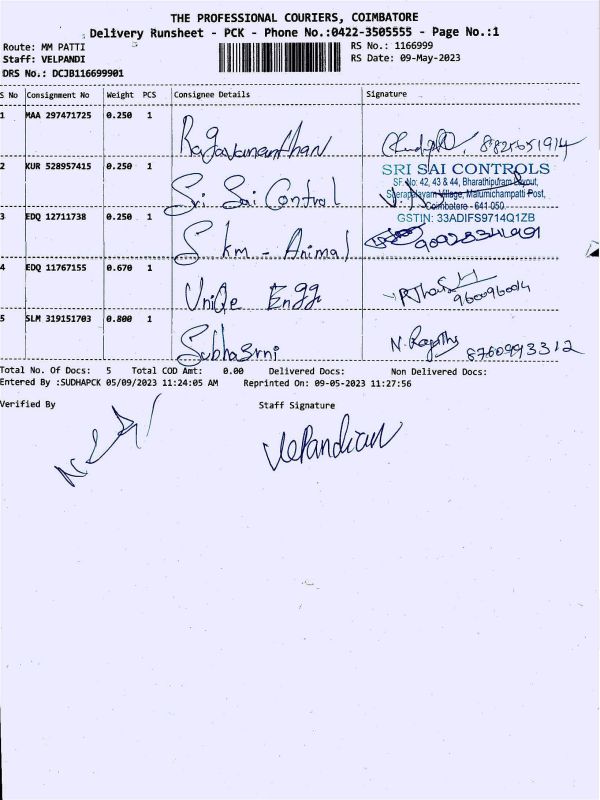 THE PROFESSIONAL COURIERS, COIMBATORE
Delivery Runsheet - PCK - Phone No.:0422-3505555 - Page No.:1
Route: MM PATTI
RS No.: 1166999
Staff: VELPANDI
RS Date: 09-May-2023
DRS No.: DCJB116699901
S No Consignment No Weight PCS Consignee Details Signature
1 MAA 297471725 0.250 1
Ragavamanthan 8825651914
2 KUR 528957415 0.250 1
SRI SAI CONTROLS
SF. No: 42, 43 & 44, Bharathipuram Layout,
Sri Sai Control
Seerapalayam Village, Malumichampatti Post,
Coimbatore - 641 050.
3 EDQ 12711738 0.250 1
GSTIN: 33ADIFS9714Q1ZB
Skm - Animal
4 EDQ 11767155 0.670 1
UniQe Engg
5 SLM 319151703 0.800 1
Subhasrni 8760993312
Total No. Of Docs: 5 Total COD Amt: 0.00 Delivered Docs: Non Delivered Docs:
Entered By :SUDHAPCK 05/09/2023 11:24:05 AM Reprinted On: 09-05-2023 11:27:56
Verified By Staff Signature
VelPandian